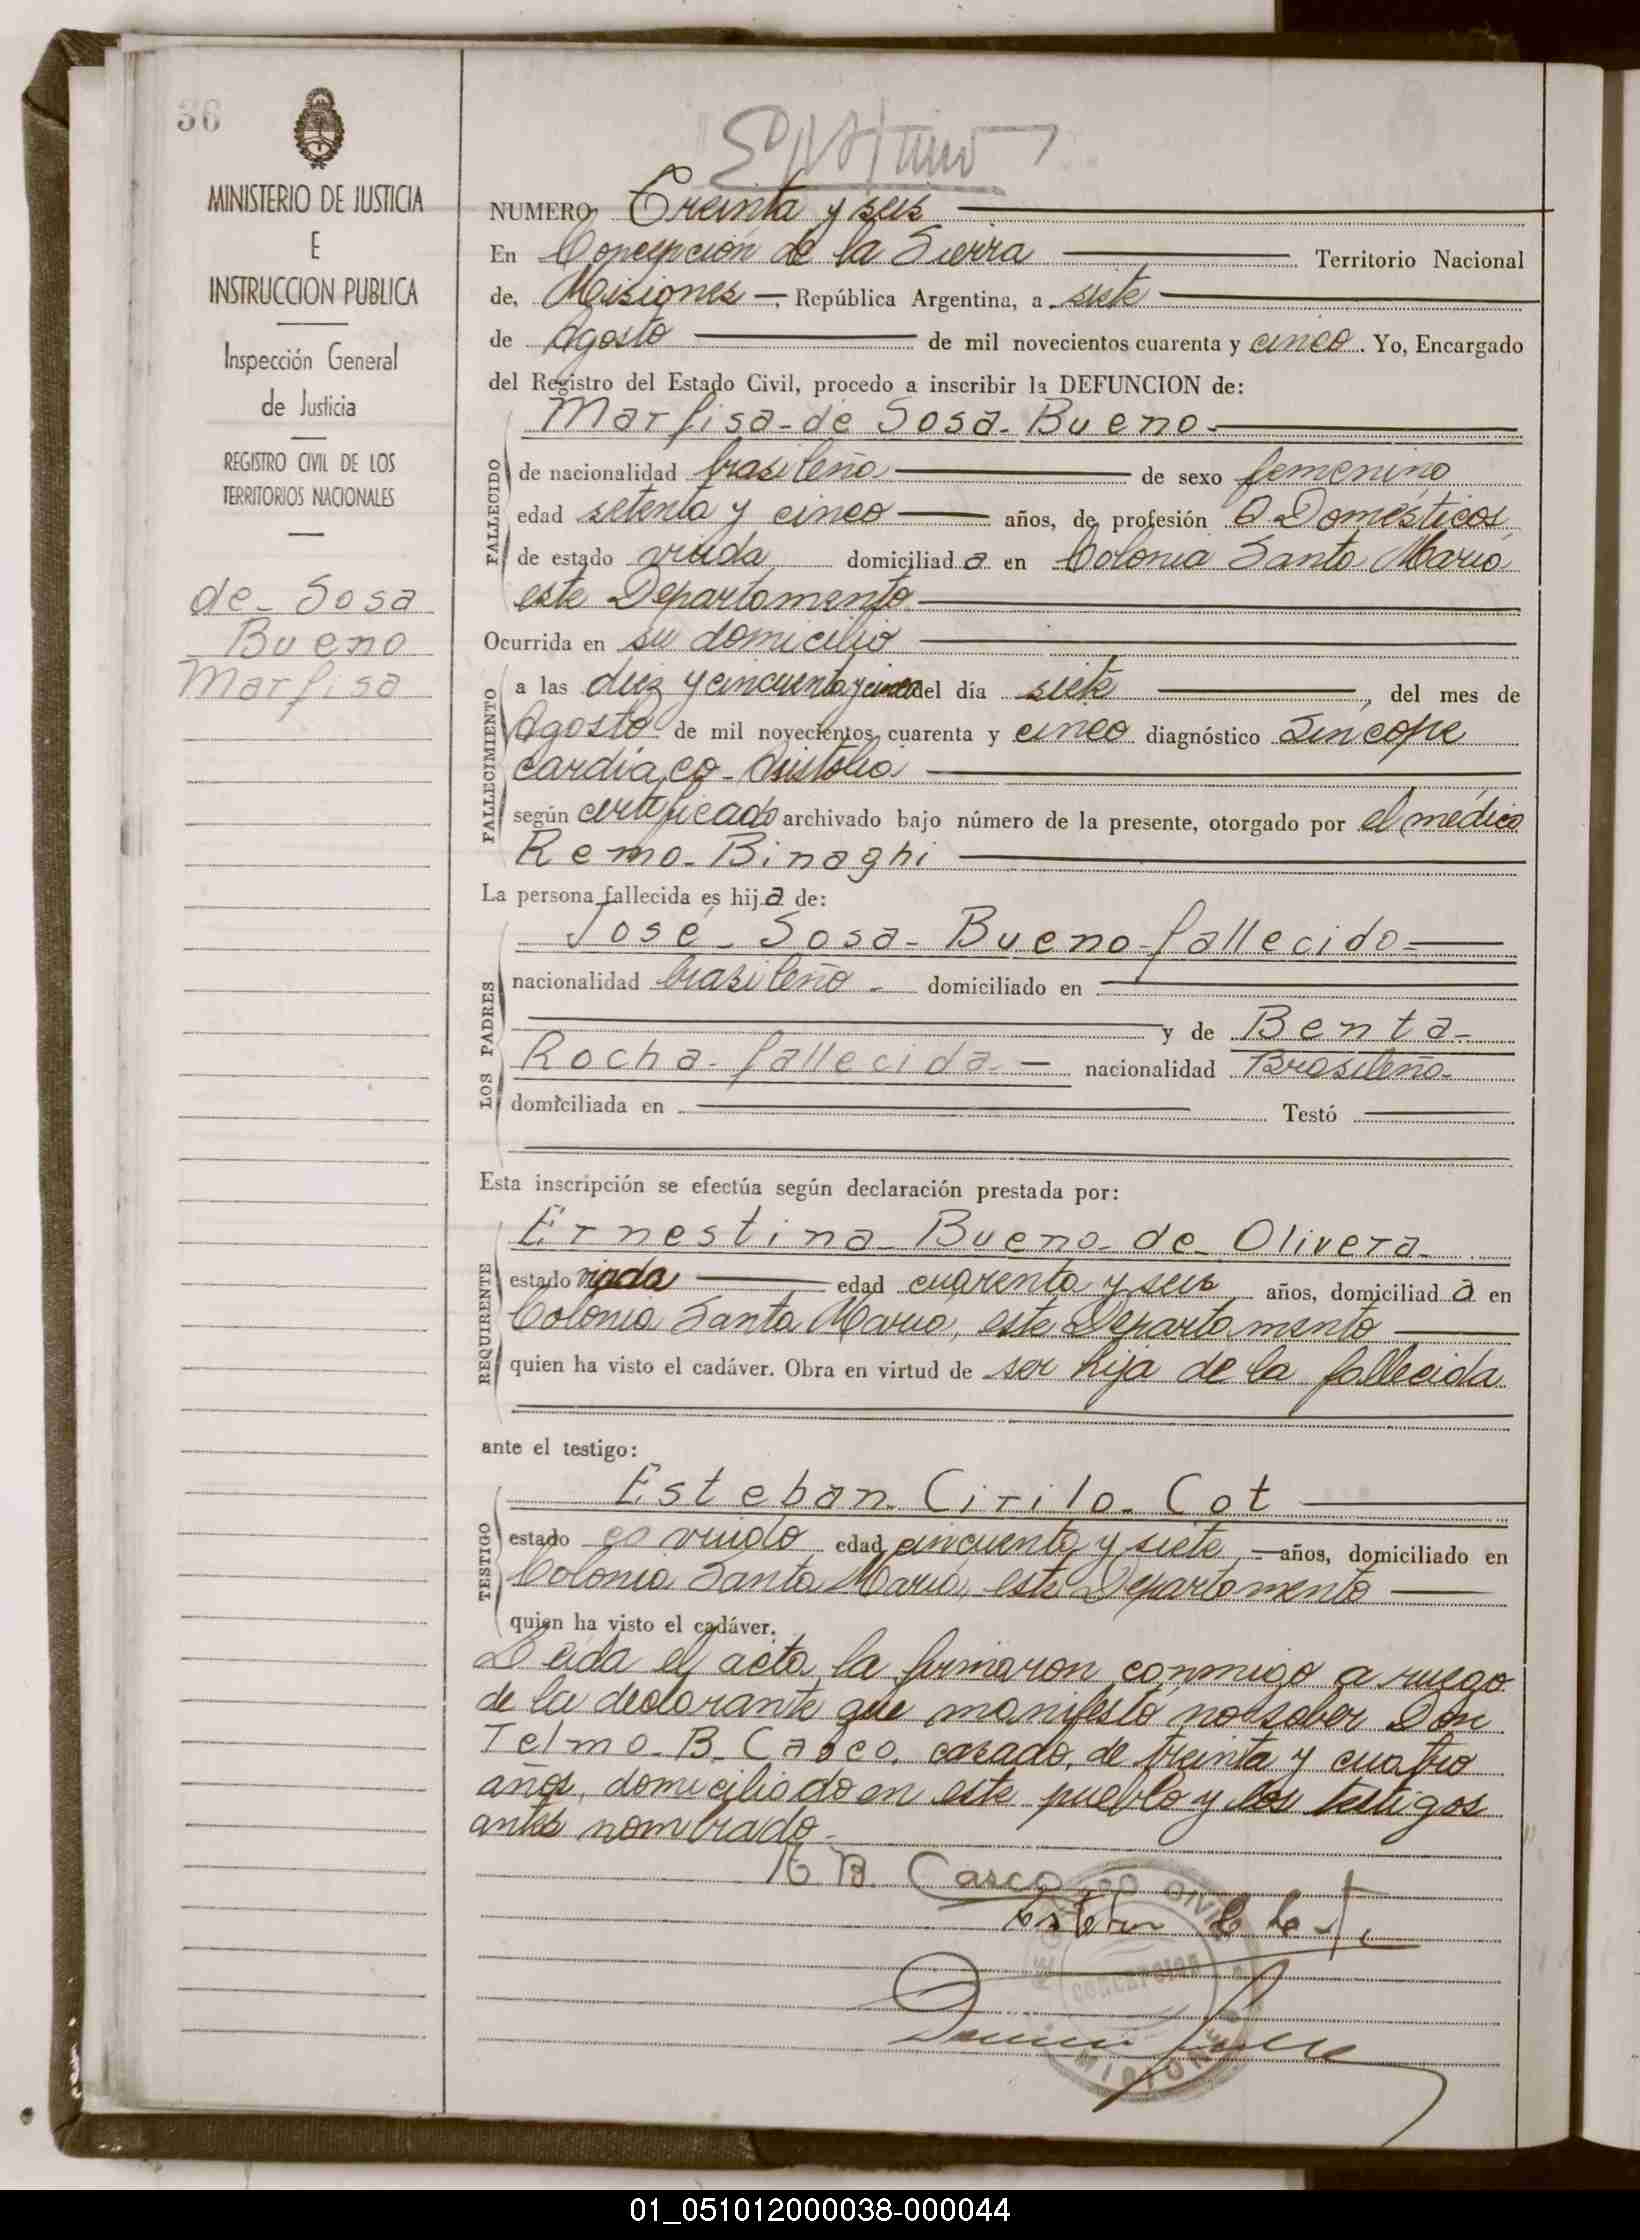 36
MINISTERIO DE JUSTICIA
E
INSTRUCCION PUBLICA
Inspección General
de Justicia
REGISTRO CIVIL DE LOS
TERRITORIOS NACIONALES
de - Sosa
Bueno
Marfisa
NUMERO Treinta y seis
En Concepción de la Sierra Territorio Nacional
de, Misiones -, República Argentina, a siete
de Agosto de mil novecientos cuarenta y cinco. Yo, Encargado
del Registro del Estado Civil, procedo a inscribir la DEFUNCION de:
Marfisa - de Sosa - Bueno -
FALLECIDO
de nacionalidad brasileña de sexo femenino
edad setenta y cinco años, de profesión Q Domésticos
de estado viuda domiciliad a en Colonia Santa María
este Departamento
Ocurrida en su domicilio
FALLECIMIENTO
a las diez y cincuenta y cinco del día siete, del mes de
Agosto de mil novecientos cuarenta y cinco diagnóstico Síncope
cardíaco - Asistolia
según certificado archivado bajo número de la presente, otorgado por el médico
Remo - Binaghi
La persona fallecida es hij a de:
José - Sosa - Bueno - fallecido -
LOS PADRES
nacionalidad brasileño - domiciliado en
y de Benta -
Rocha - fallecida - nacionalidad Brasileña -
domiciliada en Testó
Esta inscripción se efectúa según declaración prestada por:
Ernestina - Bueno - de - Olivera -
REQUIRENTE
estado viuda edad cuarenta y seis años, domiciliad a en
Colonia Santa María, este Departamento
quien ha visto el cadáver. Obra en virtud de ser hija de la fallecida
ante el testigo:
Esteban - Cirilo - Cot
TESTIGO
estado viudo edad cincuenta y siete - años, domiciliado en
Colonia Santa María, este Departamento
quien ha visto el cadáver.
Leída el acta la firmaron conmigo a ruego
de la declarante que manifestó no saber Don
Telmo - B - Casco, casado, de treinta y cuatro
años, domiciliado en este pueblo y los testigos
antes nombrado -
B. Casco
Esteban
CONCEPCION
MISIONES
01_051012000038-000044